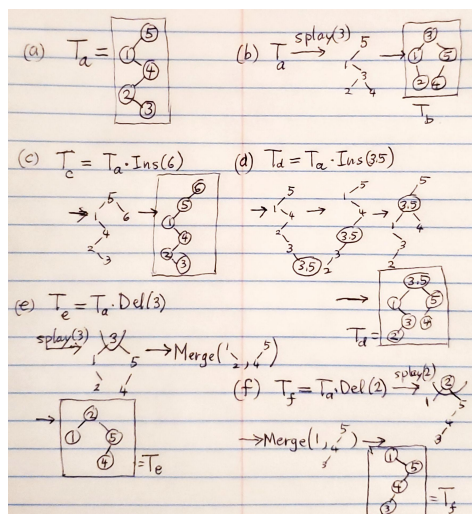 (a) Ta =
5
1
4
2
3
(b) Ta splay(3)
5
1
3
2 4
3
1 5
2 4
Tb
(c) Tc = Ta·Ins(6)
5
1 6
4
2
3
6
5
1
4
2
3
(d) Td = Ta·Ins(3.5)
5
1
4
3
2
3.5
5
1
4
3.5
3
2
5
3.5
1 4
3
2
Td =
3.5
1 5
3 4
2
(e) Te = Ta·Del(3)
splay(3)
3
1 5
2 4
Merge(1 2, 4 5)
2
1 5
4
= Te
(f) Tf = Ta·Del(2) splay(2)
2
1 5
4
3
Merge(1, 5 4 3)
1
5
4
3
= Tf